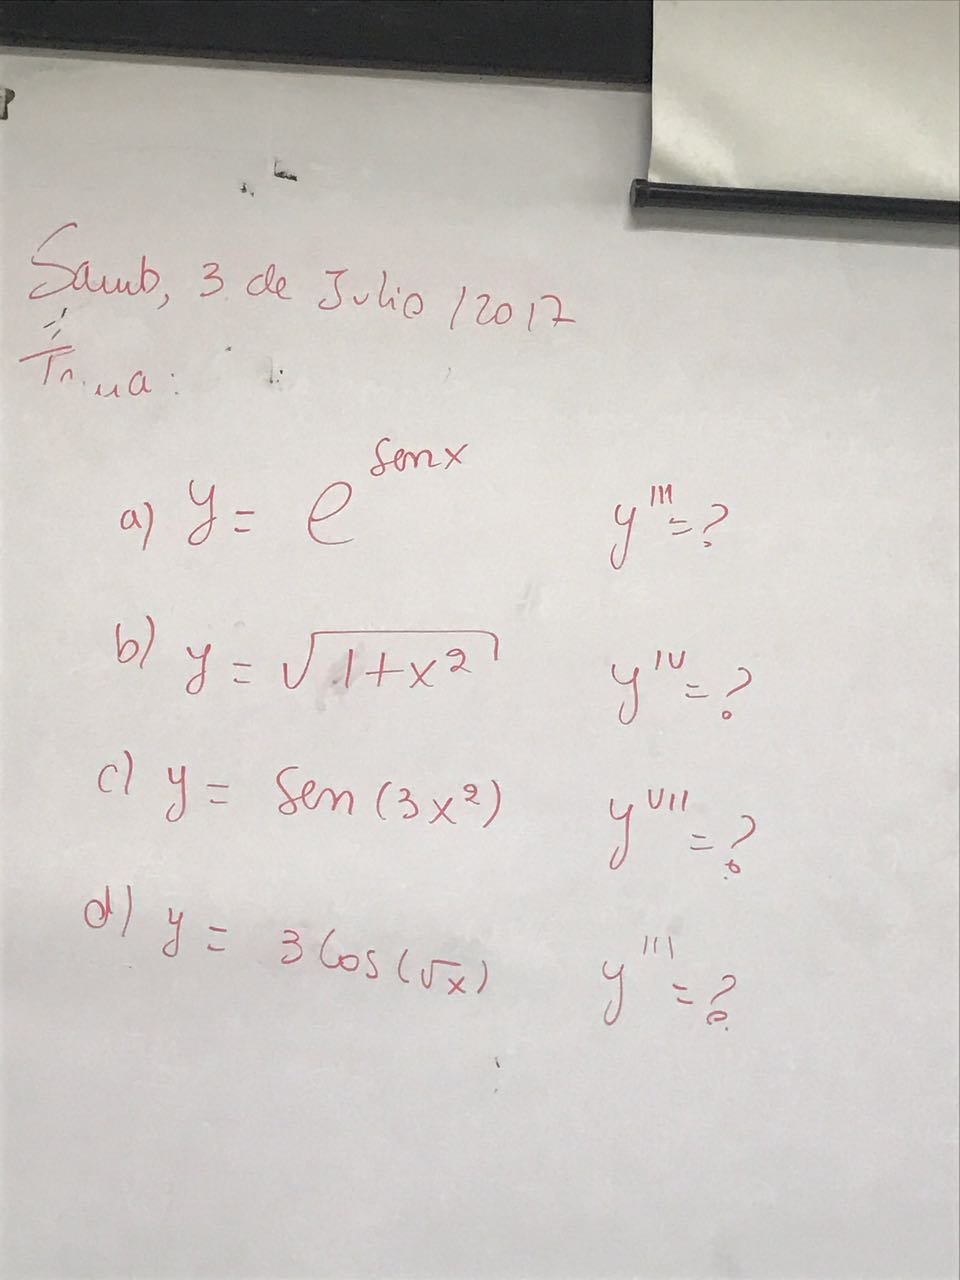 3 de Julio / 2017
a) y = e^{sen x} y''' = ?
b) y = √(1+x²) y^{IV} = ?
c) y = Sen (3x²) y^{VII} = ?
d) y = 3 Cos (√x) y''' = ?